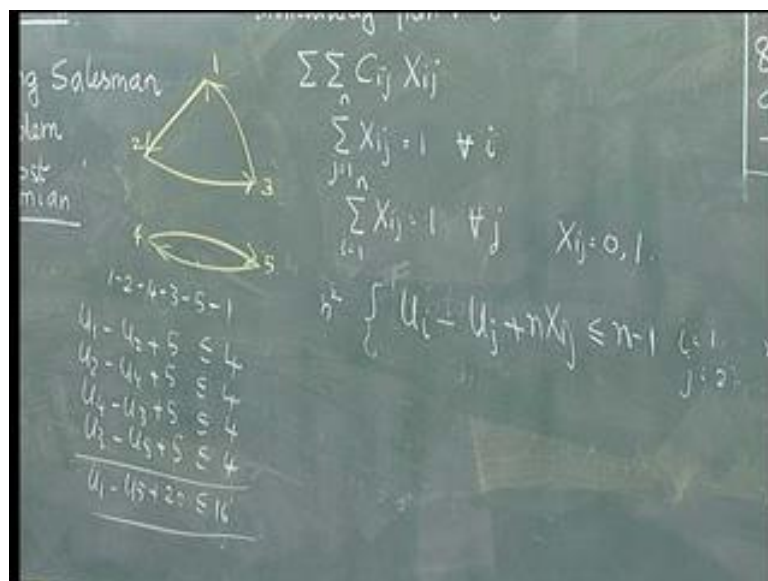 g Salesman
lem
ost
mian
1
2
3
4
5
1-2-4-3-5-1
U1 - U2 + 5 ≤ 4
U2 - U4 + 5 ≤ 4
U4 - U3 + 5 ≤ 4
U3 - U5 + 5 ≤ 4
U1 - U5 + 20 ≤ 16
ΣΣ Cij Xij
n Σ j=1 Xij = 1 ∀ i
n Σ i=1 Xij = 1 ∀ j Xij = 0, 1.
n² { Ui - Uj + nXij ≤ n-1 i = 1
j = 2
8